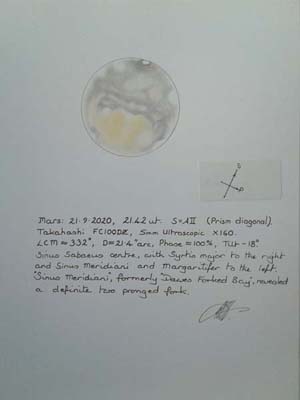 Mars: 21·9·2020, 21.42 ut. S=AII (Prism diagonal).
Takahashi FC100DZ, 5mm Ultroscopic X160.
LCM = 332°, D=21·4"arc, Phase ≈100%, Tilt -18°
Sinus Sabaeus centre, with Syrtis major to the right
and Sinus Meridiani and Margaritifer to the left.
'Sinus Meridiani', formerly 'Dawes Forked Bay', revealed
a definite two pronged fork.